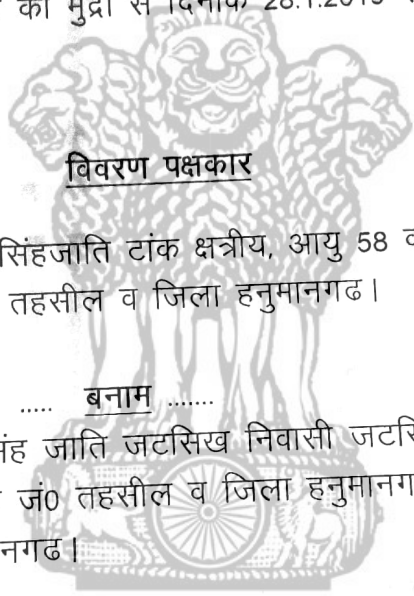 की मुद्रा से दिनांक 28.1.2015
विवरण पक्षकार
सिंहजाति टांक क्षत्रीय, आयु 58 व
तहसील व जिला हनुमानगढ।
..... बनाम .......
िंह जाति जटसिख निवासी जटसि
जं0 तहसील व जिला हनुमानग
नगढ।